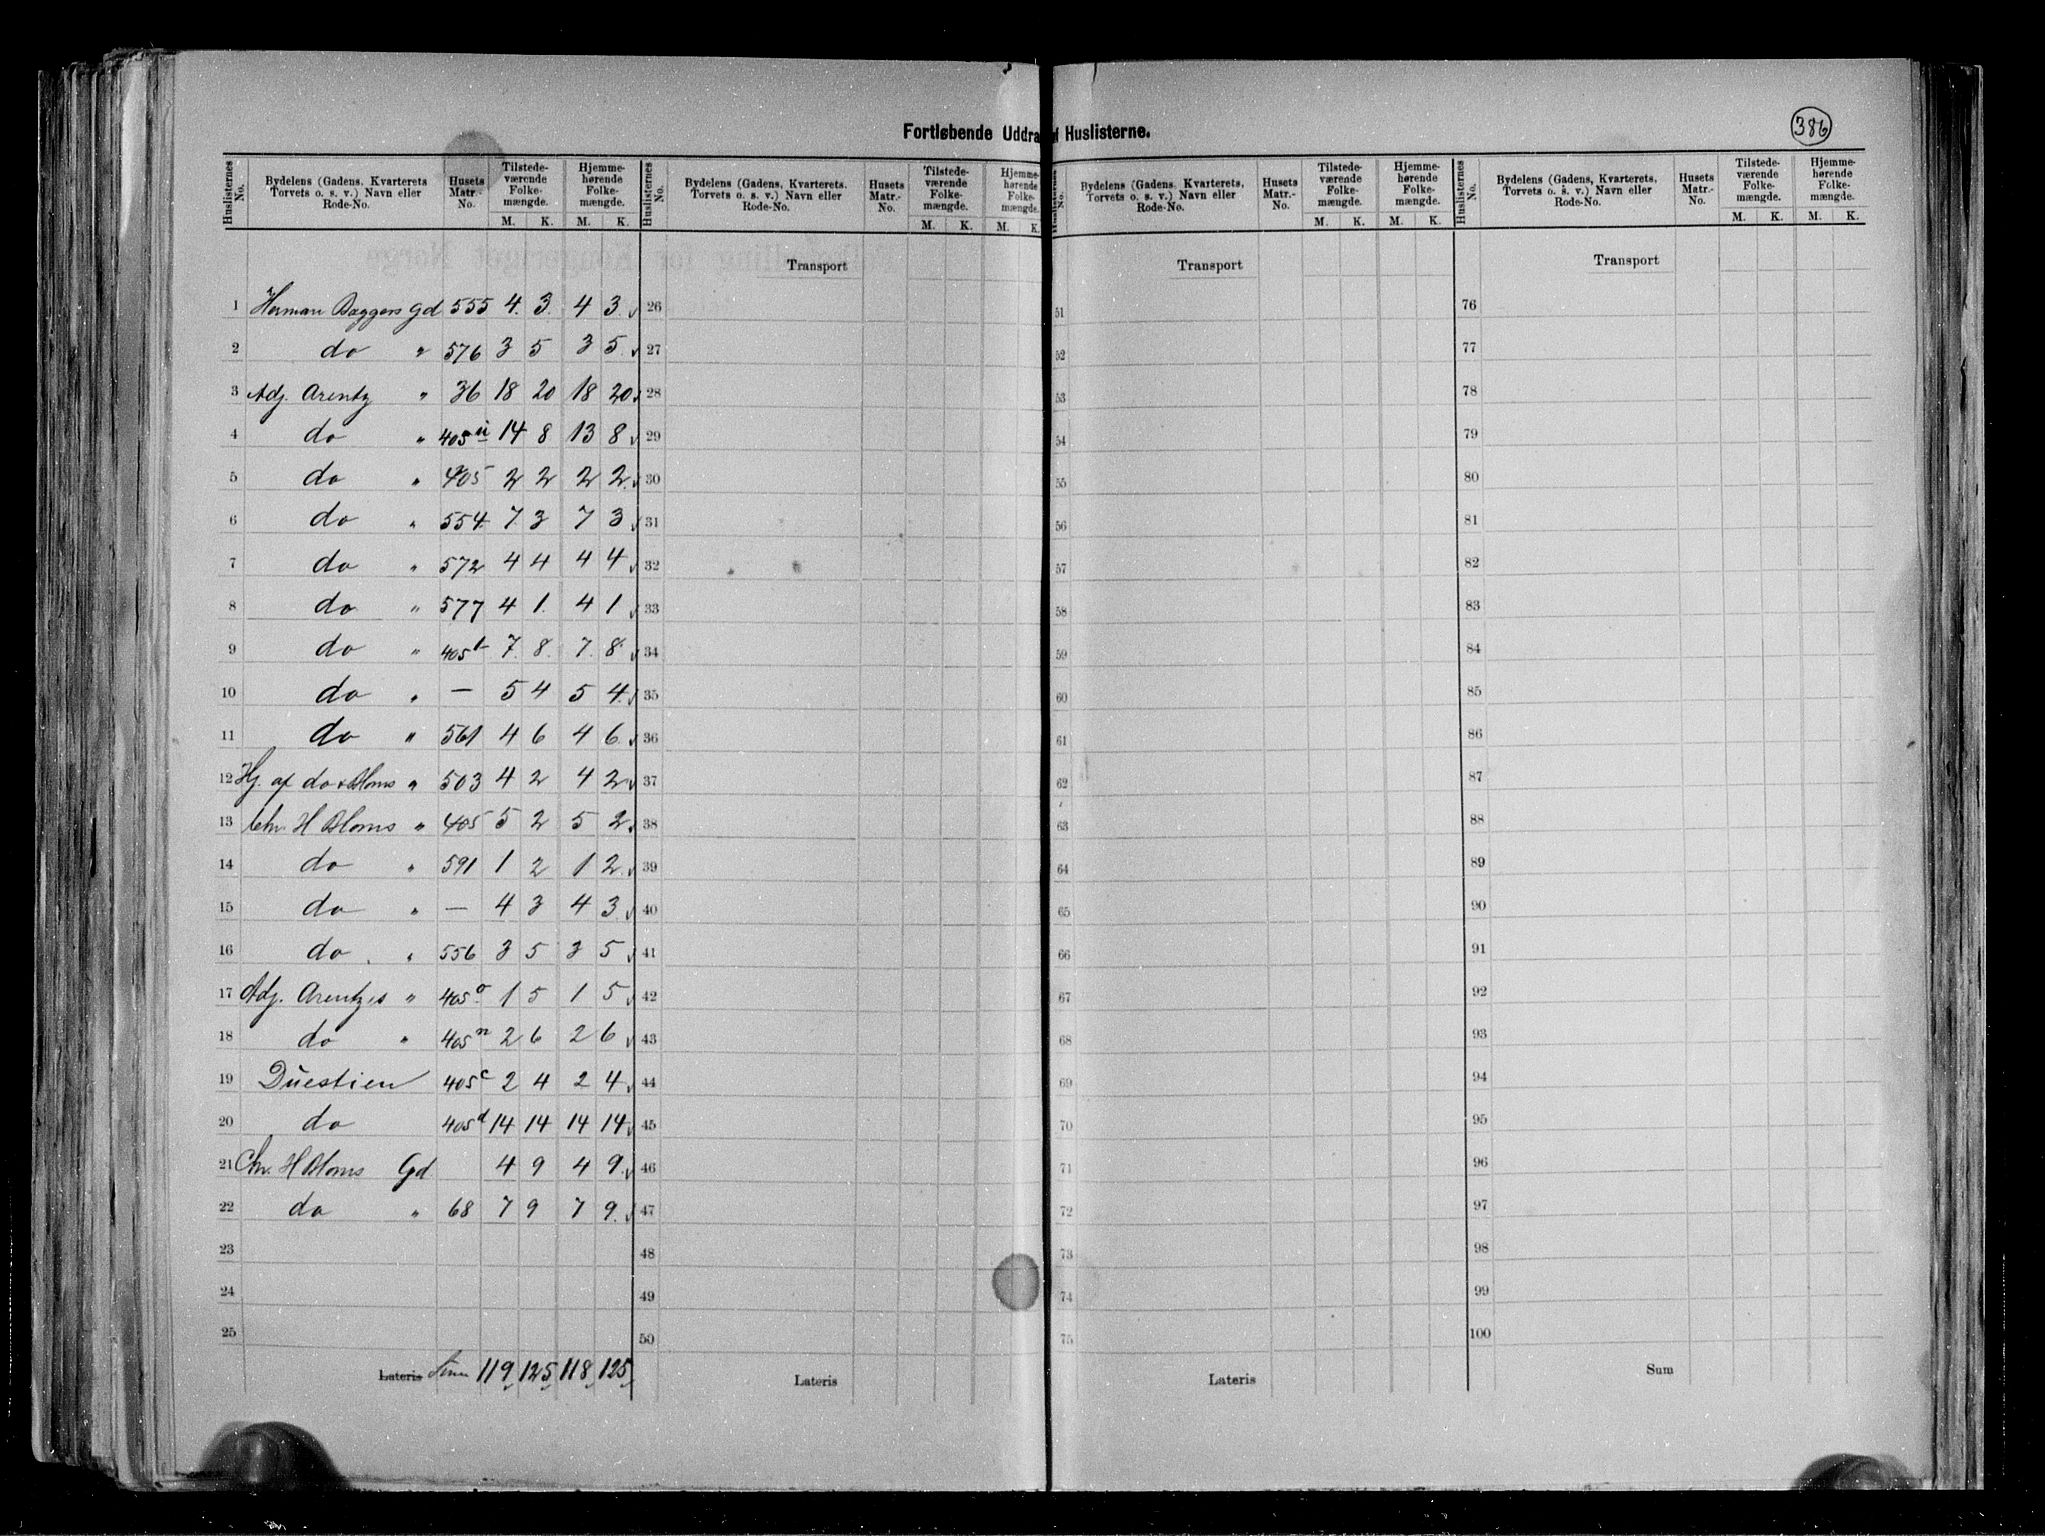 386
Fortløbende Uddra af Huslisterne.
Huslisternes No. Bydelens (Gadens, Kvarterets, Torvets o. s. v.) Navn eller Rode-No. Husets Matr.-No. Tilstede-værende Folke-mængde. M. K. Hjemme-hørende Folke-mængde. M. K.
Huslisternes No. Bydelens (Gadens, Kvarterets, Torvets o. s. v.) Navn eller Rode-No. Husets Matr.-No. Tilstede-værende Folke-mængde. M. K. Hjemme-hørende Folke-mængde. M. K.
No. Bydelens (Gadens, Kvarterets, Torvets o. s. v.) Navn eller Rode-No. Husets Matr.-No. Tilstede-værende Folke-mængde. M. K. Hjemme-hørende Folke-mængde. M. K.
Huslisternes No. Bydelens (Gadens, Kvarterets, Torvets o. s. v.) Navn eller Rode-No. Husets Matr.-No. Tilstede-værende Folke-mængde. M. K. Hjemme-hørende Folke-mængde. M. K.
Transport Transport Transport
1 Herman Baggers Gd 555 4 3 4 3 26 51 76
2 do " 576 3 5 3 5 27 52 77
3 Adj. Arentz " 36 18 20 18 20 28 53 78
4 do " 405 u 14 8 13 8 29 54 79
5 do " 405 2 2 2 2 30 55 80
6 do " 554 7 3 7 3 31 56 81
7 do " 572 4 4 4 4 32 57 82
8 do " 577 4 1 4 1 33 58 83
9 do " 405 7 8 7 8 34 59 84
10 do " — 5 4 5 4 35 60 85
11 do " 561 4 6 4 6 36 61 86
12 Hj. af do & Bloms " 503 4 2 4 2 37 62 87
13 Chr. H Bloms " 405 5 2 5 2 38 63 88
14 do " 591 1 2 1 2 39 64 89
15 do " — 4 3 4 3 40 65 90
16 do " 556 3 5 3 5 41 66 91
17 Adj. Arentzes " 405 o 1 5 1 5 42 67 92
18 do " 405 n 2 6 2 6 43 68 93
19 Duestien 405 c 2 4 2 4 44 69 94
20 do 405 d 14 14 14 14 45 70 95
21 Chr. H Bloms Gd 4 9 4 9 46 71 96
22 do " 68 7 9 7 9 47 72 97
23 48 73 98
24 49 74 99
25 50 75 100
Lateris Sum 119 125 118 125 Lateris Lateris Sum